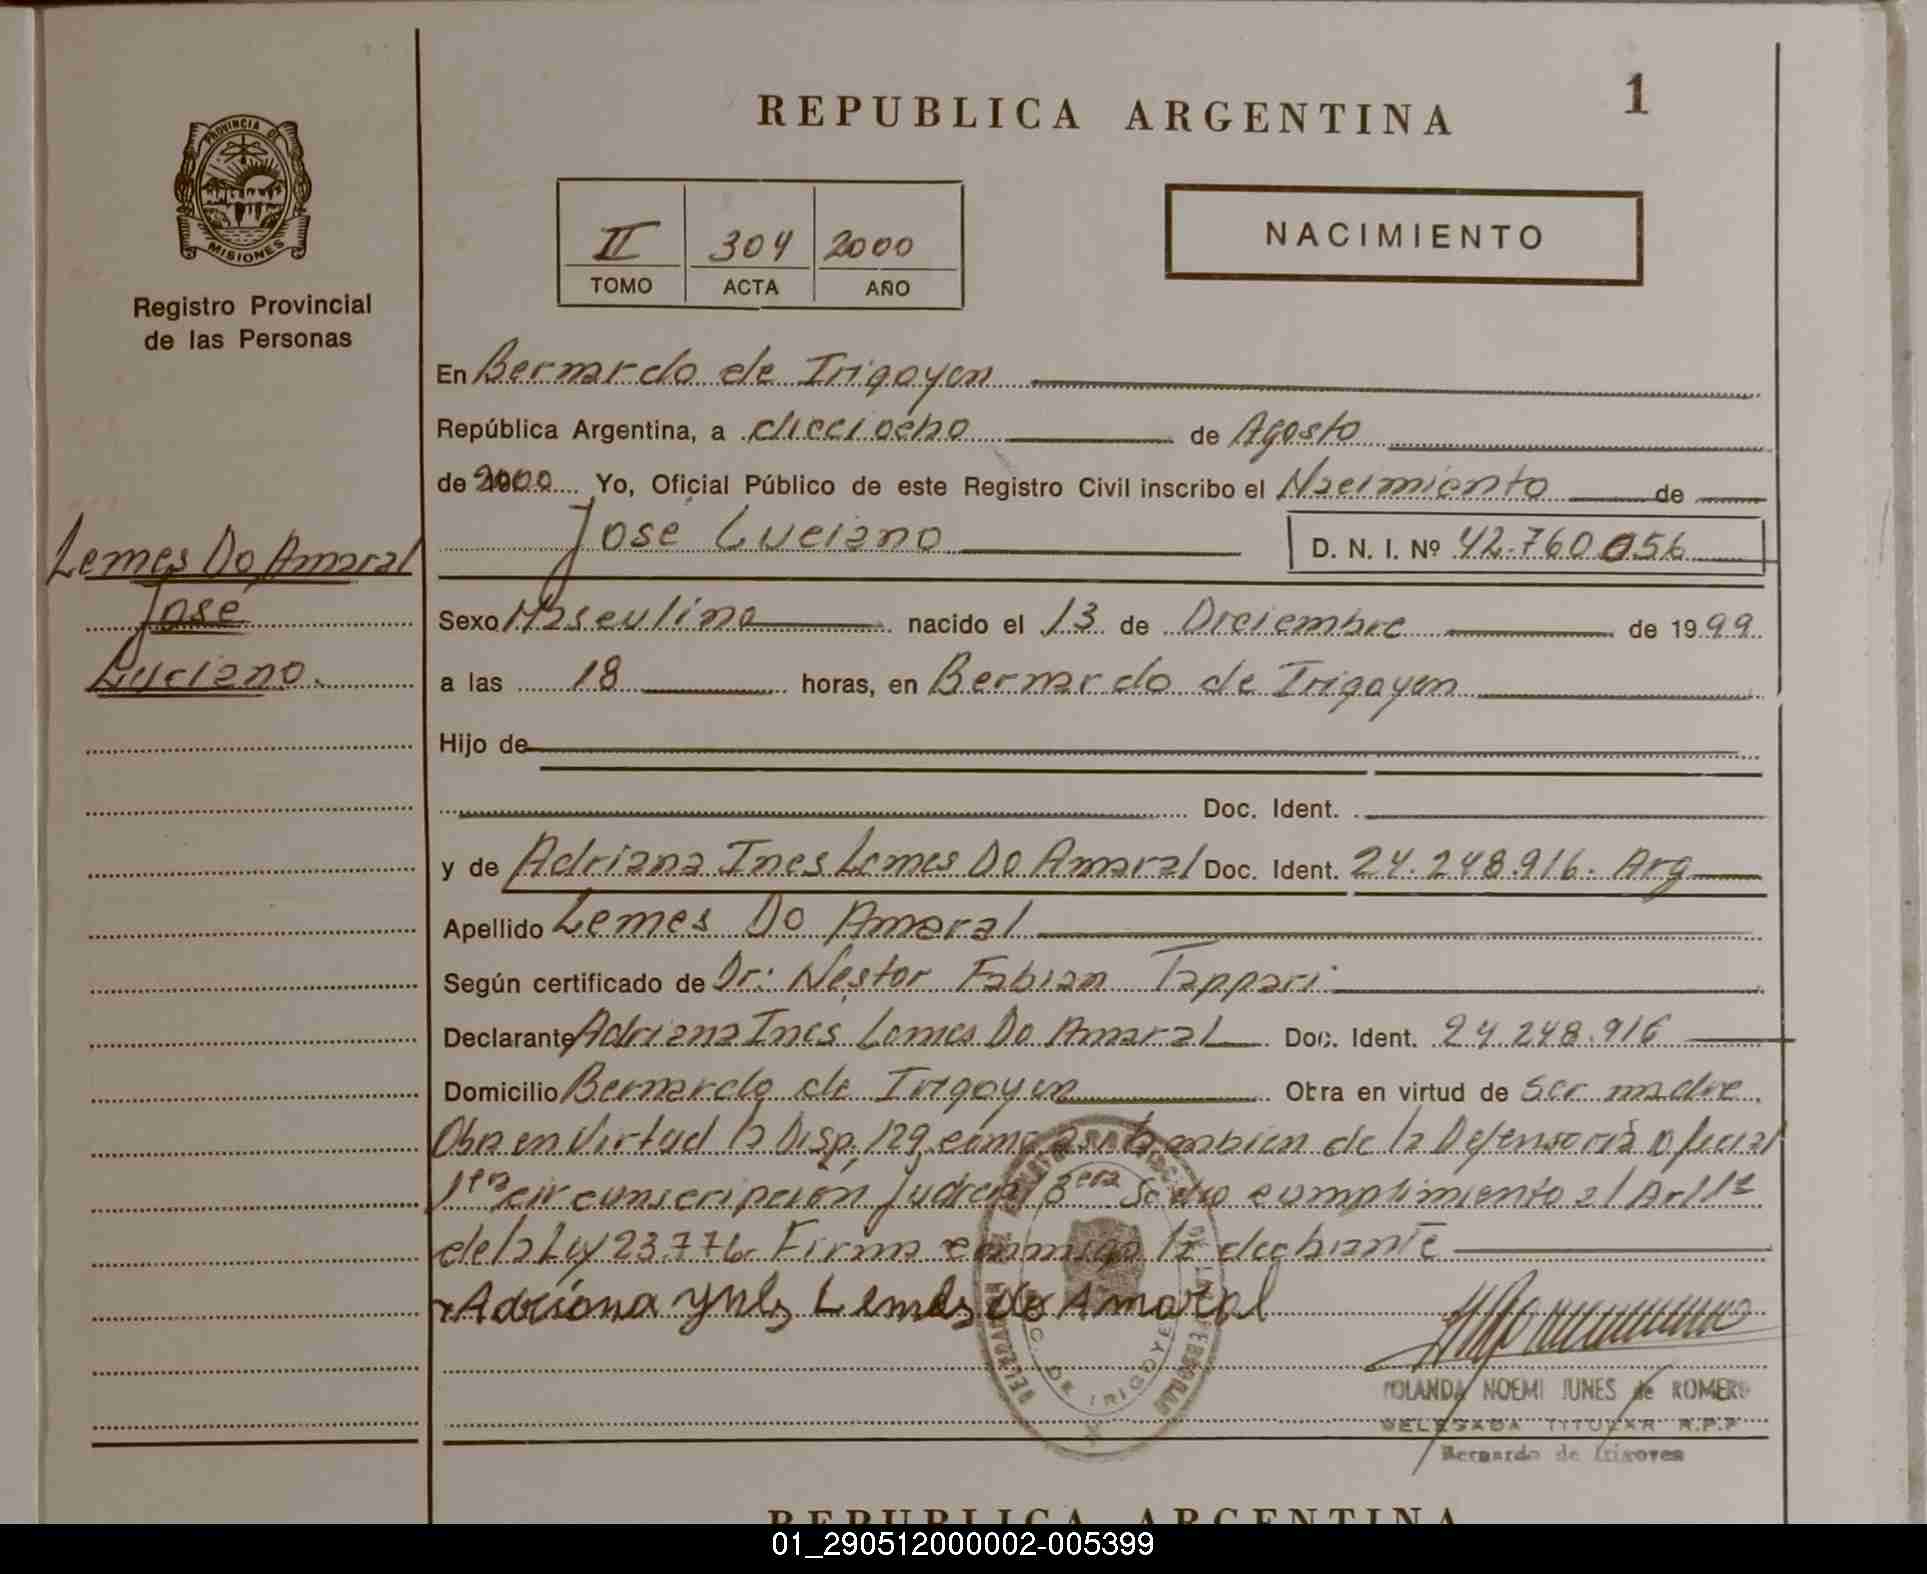 REPUBLICA ARGENTINA
1
PROVINCIA DE
MISIONES
Registro Provincial
de las Personas
II 304 2000
TOMO ACTA AÑO
NACIMIENTO
En Bernardo de Irigoyen
República Argentina, a dieciocho de Agosto
de 2000 Yo, Oficial Público de este Registro Civil inscribo el Nacimiento de
José Luciano D. N. I. Nº 42.760.056
Lemes Do Amaral
José
Luciano.
Sexo Masculino nacido el 13 de Diciembre de 1999
a las 18 horas, en Bernardo de Irigoyen
Hijo de
Doc. Ident.
y de Adriana Ines Lemes Do Amaral Doc. Ident. 24.248.916. Arg
Apellido Lemes Do Amaral
Según certificado de Dr: Nestor Fabian Tappari
Declarante Adriana Ines Lemes Do Amaral Doc. Ident. 24.248.916
Domicilio Bernardo de Irigoyen Obra en virtud de ser madre
Obra en Virtud la Disp. 129 como también de la Defensoria Oficial
1era circunscripción Judicial 3era cumplimiento al Art 1º
de la Ley 23.776. Firma conmigo la declarante
Adriana ynes Lemes do Amaral
DE IRIGOYEN
YOLANDA NOEMI JUNES de ROMERO
DELEGADA TITULAR R.P.P
Bernardo de Irigoyen
REPUBLICA ARGENTINA
01_290512000002-005399